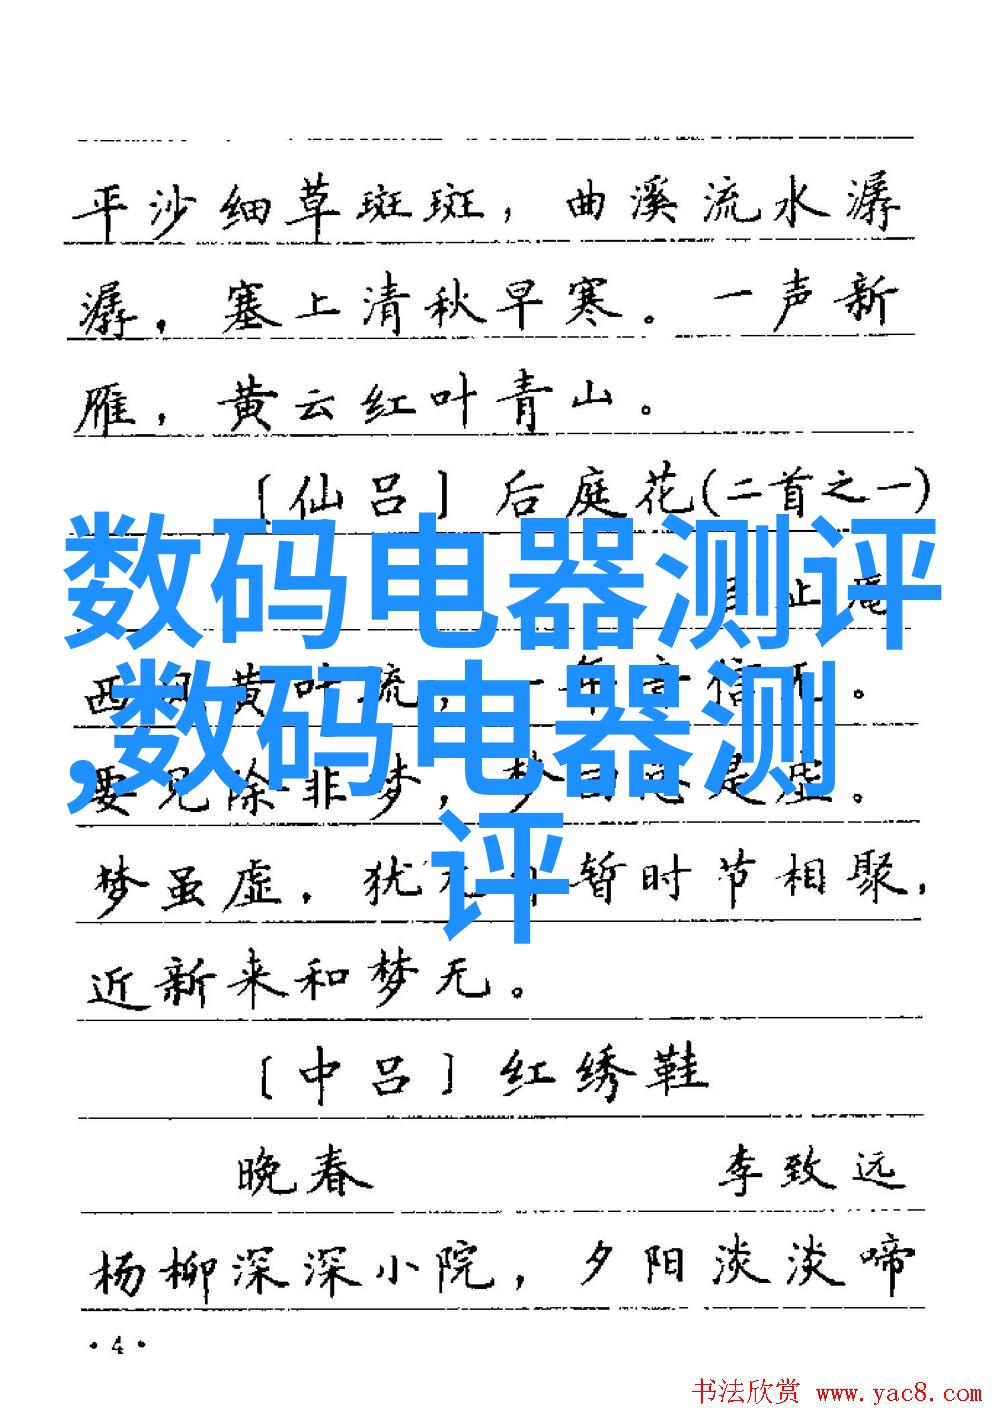 平沙细草斑斑，曲溪流水潺
潺，塞上清秋早寒。一声新
雁，黄云红叶青山。
〔仙吕〕后庭花(二首之一)
数码电器测评
止庵
西风黄叶疏，一年音信无。
,数码电器测
要见除非梦，梦是虚。
评
梦虽虚，犹暂时节相聚，
近新来和梦无。
〔中吕〕红绣鞋
晚春 李致远
杨柳深深小院，夕阳淡淡啼
·4·
书法欣赏 www.yac8.com